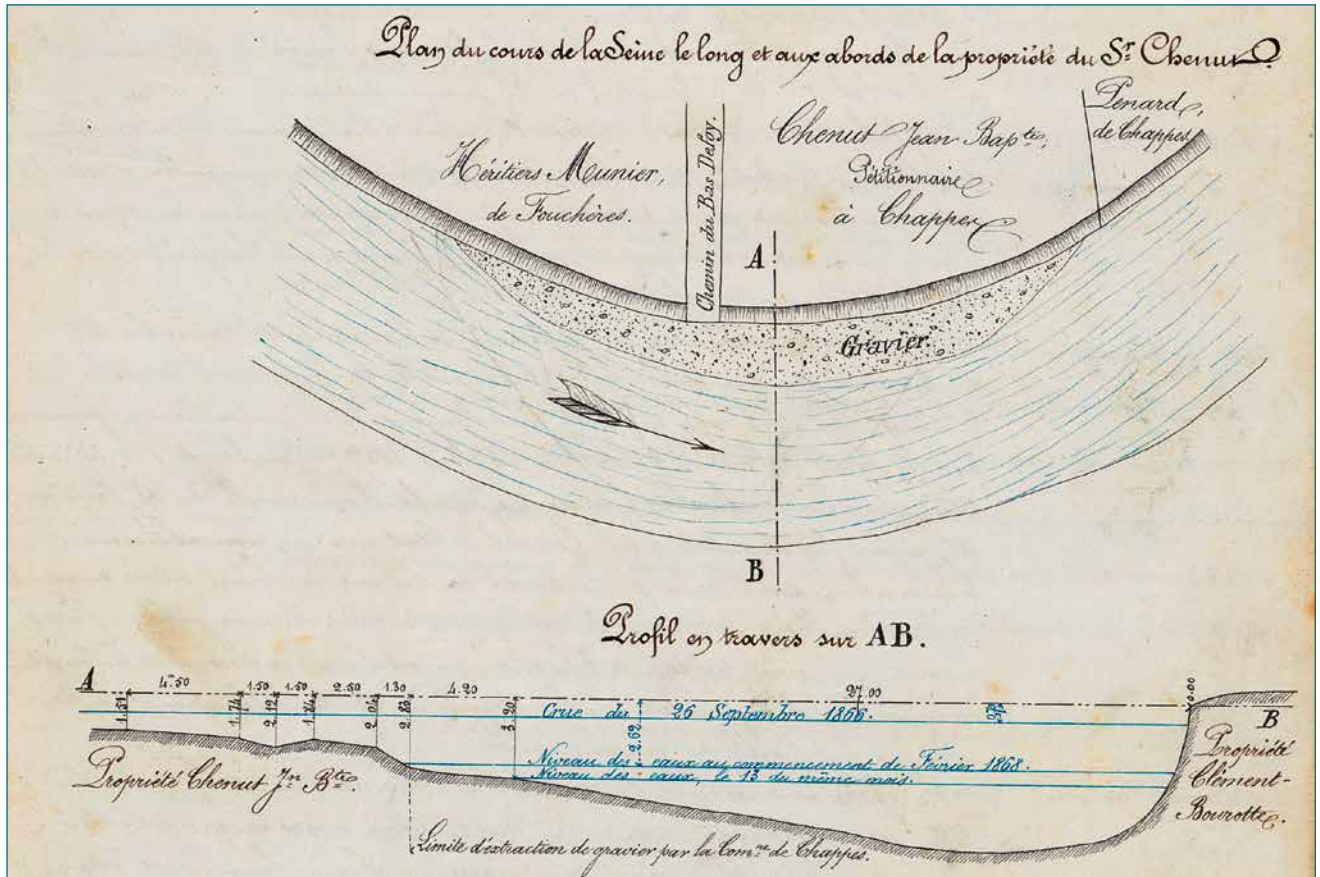 Plan du cours de la Seine le long et aux abords de la propriété du Sr. Chenut
Héritiers Meunier,
de Fouchères.
Chemin du Bas Deloy.
Chenut Jean Bapte,
Pétitionnaire
à Chappes
Penard,
de Chappes
A
Gravier.
B
Profil en travers sur AB.
A
4m.50 1.50 1.50 2.50 1.30 4.20 27.00
1.31 1.74 2.12 1.74 2.04 3.20 0.00
Crue du 26 Septembre 1866.
B
2.62
Niveau des eaux au commencement de Février 1868.
Niveau des eaux, le 13 du même mois.
Propriété Chenut Jn. Bte.
Propriété
Clément-
Bourotte.
Limite d'extraction de gravier par la Comne de Chappes.